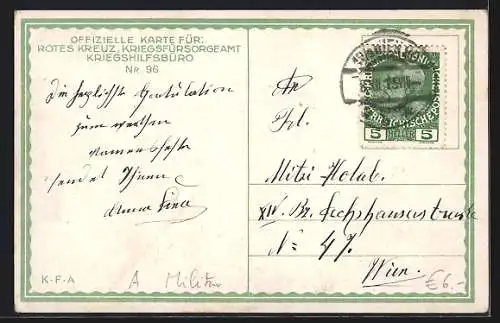 OFFIZIELLE KARTE FÜR:
ROTES KREUZ, KRIEGSFÜRSORGEAMT
KRIEGSHILFSBÜRO
NR. 96
Die herzlichste Gratulation
zum werthen
Namensfeste
sendet Ihnen
Anna
An
Frl.
Mitzi Holub.
XIV. Bz. Sechshauserstrasse
No 47.
Wien.
5 HELLER 5
K-F-A
A Militär
€ 6.-